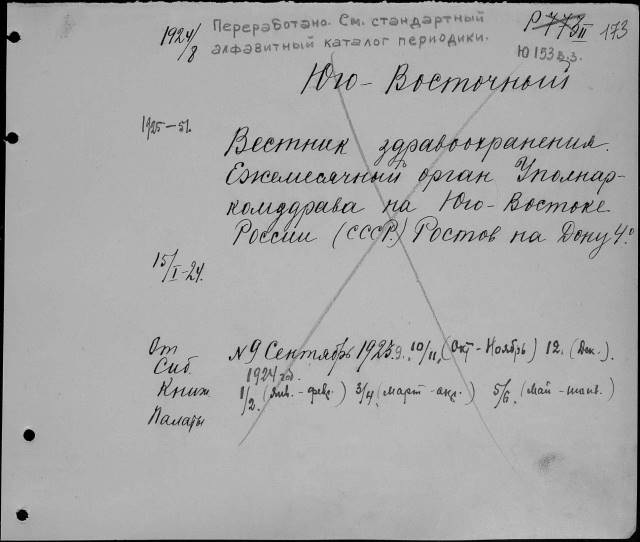 1924/8 Переработано. См. стандартный Р 773 II 173
алфавитный каталог периодики. Ю 153 в.з.
Юго-Восточный
1925-51.
Вестник здравоохранения.
Ежемесячный орган Уполнар-
комздрава на Юго-Востоке
России (СССР.) Ростов на Дону 4°
15/I-24.
От № 9 Сентябрь 1923 г. 10/11, (Окт-Ноябрь) 12. (Дек.).
Сиб. 1924 год.
Книж. 1/2. (Янв.-февр.) 3/4 (Март-апр.) 5/6. (Май-
Палаты